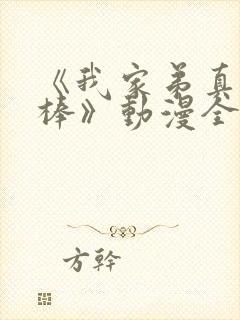 《我家弟真
棒》動漫全
方幹